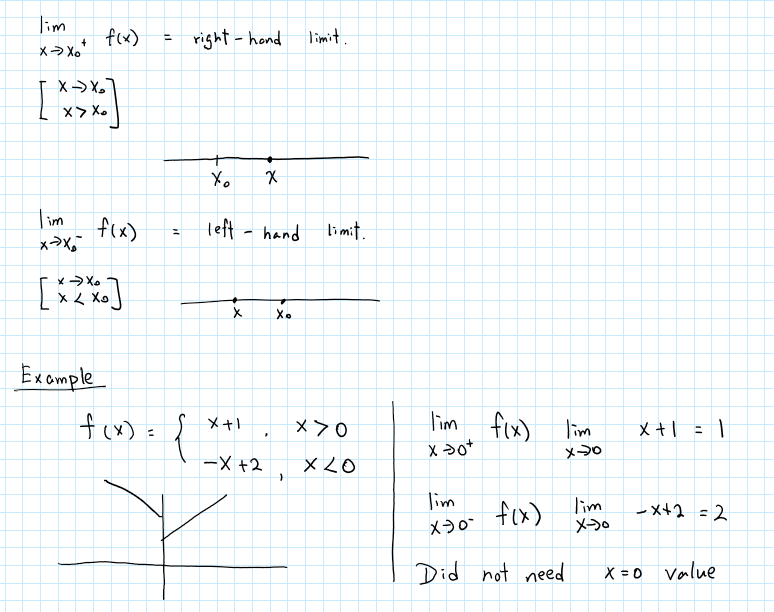 lim x→x₀⁺ f(x) = right-hand limit.
[x→x₀
x > x₀]
x₀ x
lim x→x₀⁻ f(x) = left-hand limit.
[x→x₀
x < x₀]
x x₀
Example
f(x) = { x+1, x>0
-x+2, x<0
lim x→0⁺ f(x) lim x→0 x+1 = 1
lim x→0⁻ f(x) lim x→0 -x+2 = 2
Did not need x=0 value